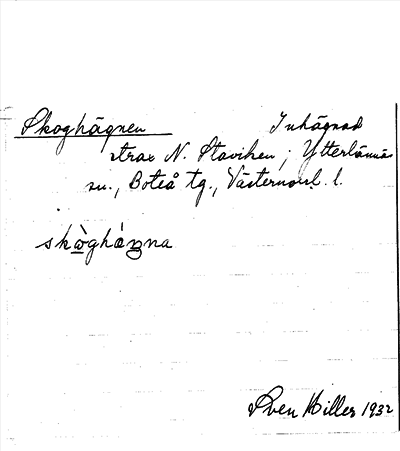 Skoghägnen Inhägnad
strax N. Staviken, Ytterlännäs
sn., Boteå tg., Västernorrl. l.
skòghàŋna
Sven Hiller 1932